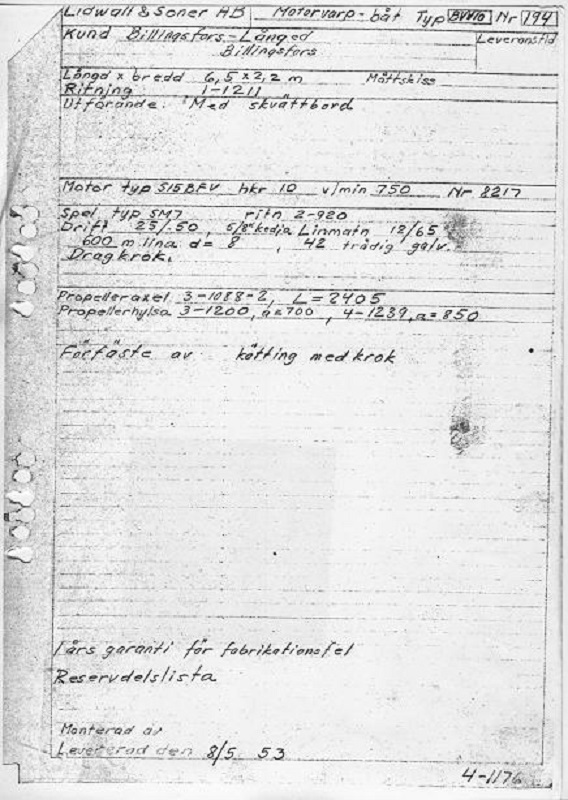 Lidwall & Söner AB Motorvarp-båt Typ BVV10 Nr 194
Kund Billingsfors-Långed Leveranstid
Billingsfors
Längd x bredd 6,5 x 2,2 m Måttskiss
Ritning 1-1211
Utförande: Med skvättbord
Motor typ S15BFV hkr 10 v/min 750 Nr 8217
Spel typ SM7 ritn 2-920
Drift 25/50, 5/8" kedja Linmatn 12/65
600 m lina d= 8, 42 trådig galv.
Dragkrok.
Propelleraxel 3-1088-2, L=2405
Propellerhylsa 3-1200, a=700, 4-1239, a=850
Förfäste av kätting med krok
1 års garanti för fabrikationsfel
Reservdelslista
Monterad av
Levererad den 8/5 53
4-1176